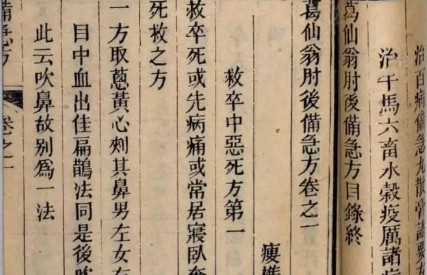 治百病備急丸散膏諸要方
治牛馬六畜水穀疫厲諸病
葛仙翁肘後備急方目錄終
葛仙翁肘後備急方卷之一
救卒中惡死方第一
救卒死或先病痛或常居寢臥奄
死救之方
一方取蔥黃心刺其鼻男左女右
目中血出佳扁鵲法同是後
此云吹鼻故别爲一法
備急方 卷之一